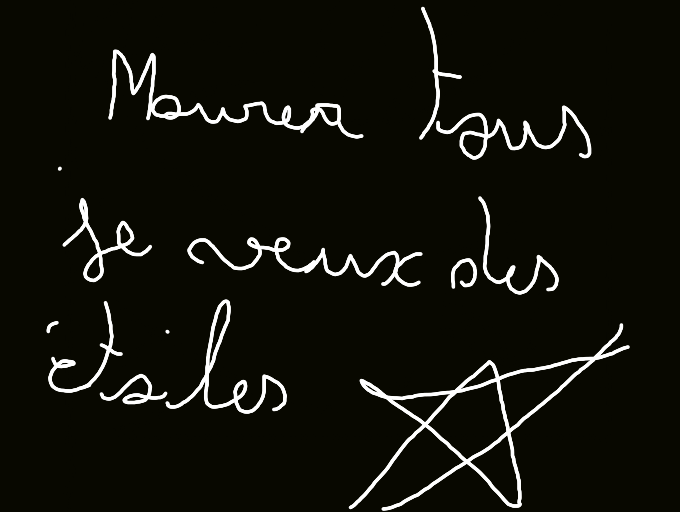 Mourez tous
je veux des
étoiles